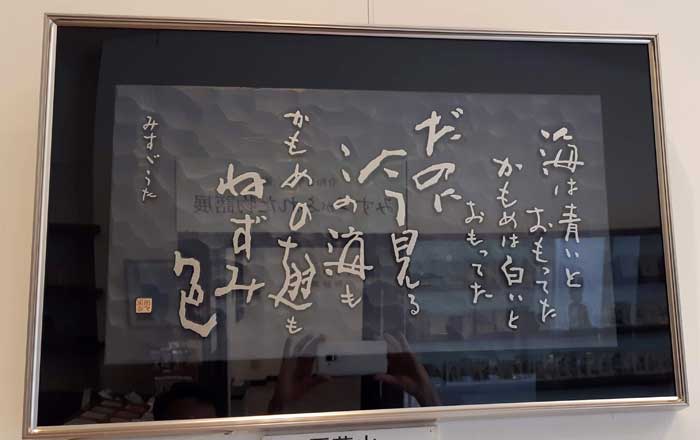 海は青いと
おもってた
かもめは白いと
おもってた
だのに
今見る
この海も
かもめの翅も
ねずみ
色
みすゞうた